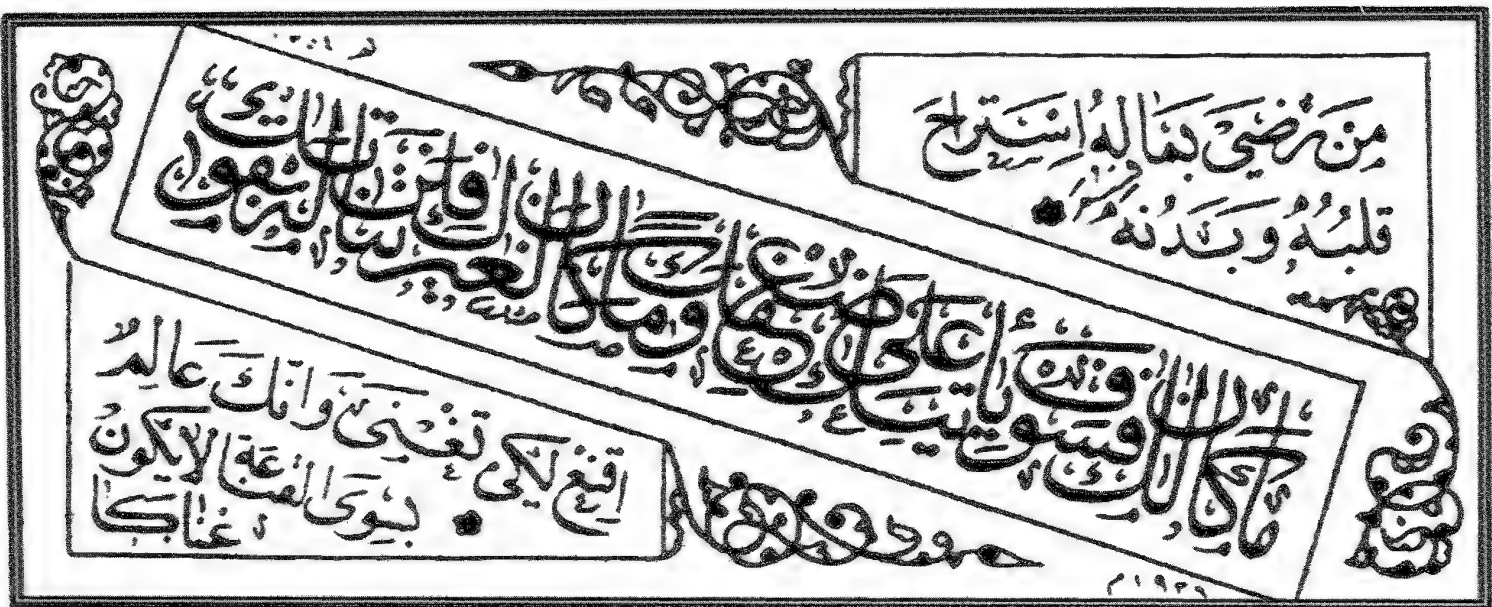 من يرضى بما له استراح
قلبه وبدنه
ما كان لك فسوف يأتيك على ضعفك وما كان لغيرك فلن تناله بقوتك
اقنع لكي تغنى وانك عالم
بسوى القناعة لا يكون
غناكا